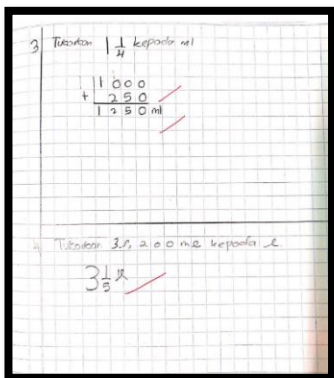 3 Tukarkan 1 1/4 kepada ml
1000
+ 250
1250 ml
4 Tukarkan 3 l, 200 ml kepada l.
3 1/5 l